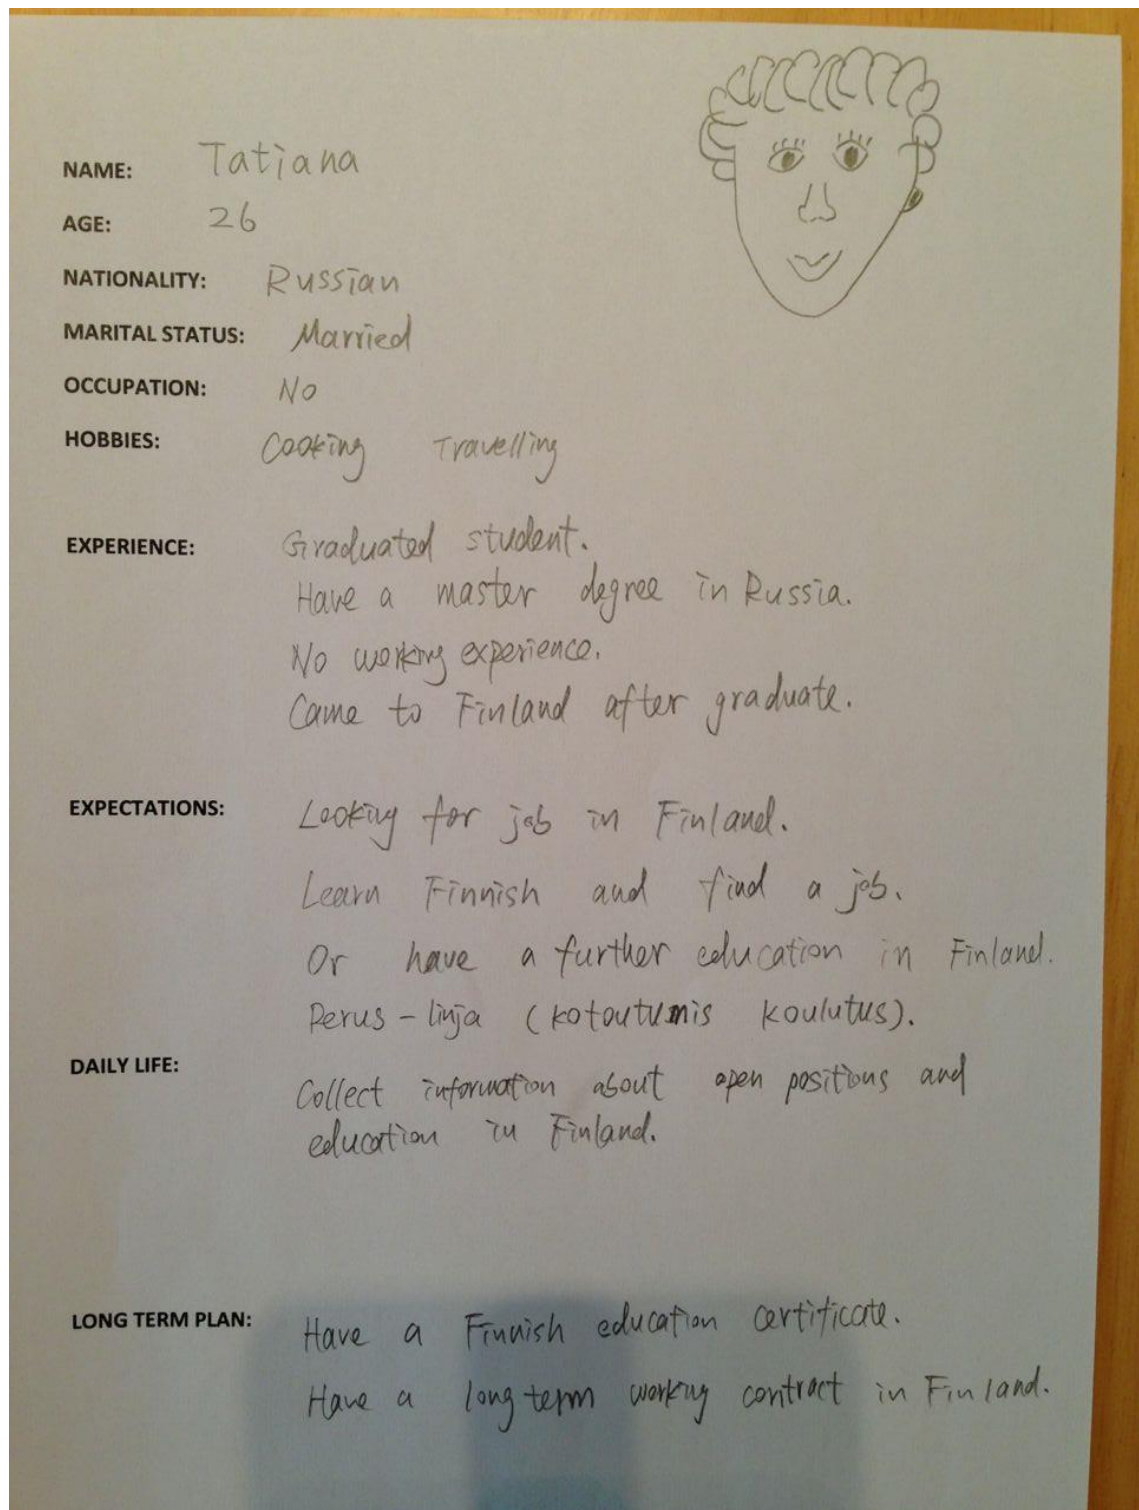 NAME: Tatiana
AGE: 26
NATIONALITY: Russian
MARITAL STATUS: Married
OCCUPATION: No
HOBBIES: Cooking Travelling
EXPERIENCE: Graduated student.
Have a master degree in Russia.
No working experience.
Came to Finland after graduate.
EXPECTATIONS: Looking for job in Finland.
Learn Finnish and find a job.
Or have a further education in Finland.
Perus-linja (kotoutumis koulutus).
DAILY LIFE: Collect information about open positions and
education in Finland.
LONG TERM PLAN: Have a Finnish education certificate.
Have a long term working contract in Finland.